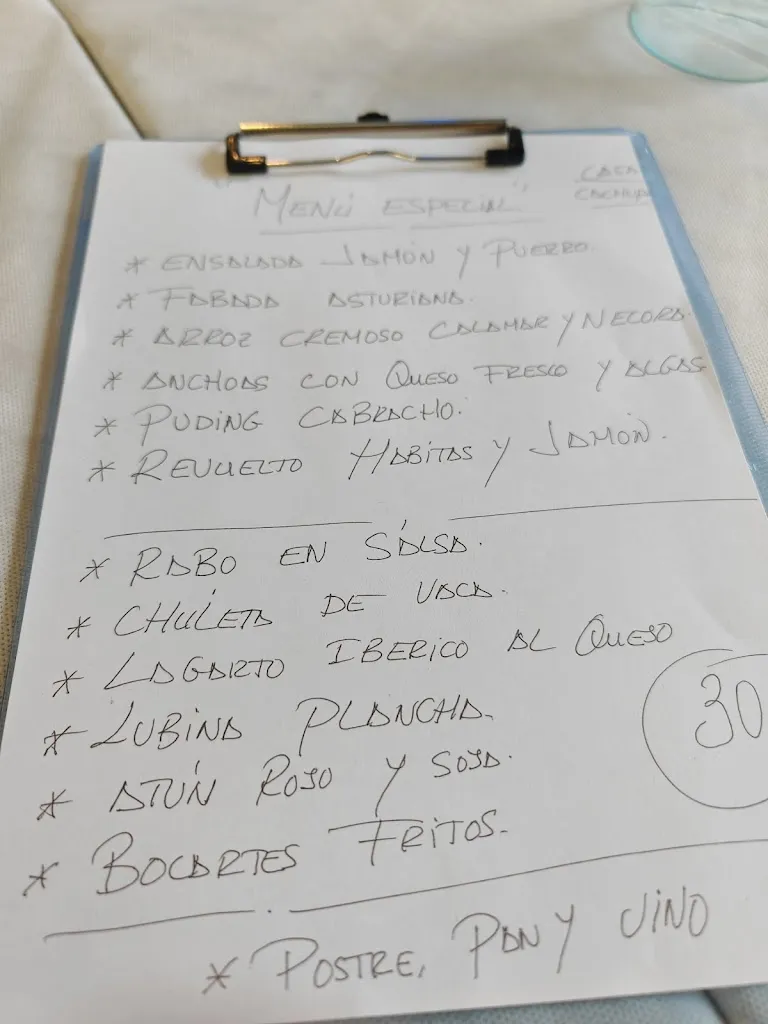 "MENÚ ESPECIAL"
CASA
* ENSALADA JAMÓN Y PUERRO.
* FABADA ASTURIANA.
* ARROZ CREMOSO CALAMAR Y NECORA.
* ANCHOAS CON QUESO FRESCO Y ALGAS
* PUDING CABRACHO.
* REVUELTO HABITAS Y JAMÓN.
* RABO EN SALSA.
* CHULETA DE VACA.
* LAGARTO IBERICO AL QUESO
* LUBINA PLANCHA.
30
* ATÚN ROJO Y SOJA.
* BOCARTES FRITOS.
* POSTRE, PAN Y VINO